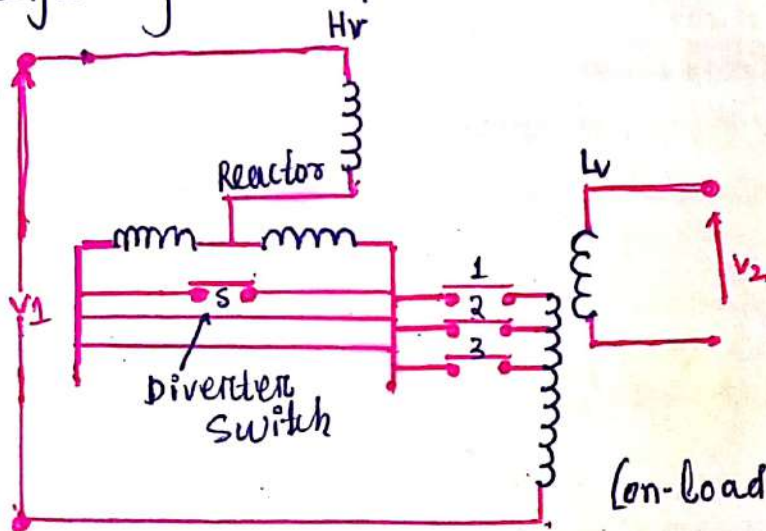 Hv
Reactor
Lv
1
S
2
V1
V2
3
Diverter
Switch
(on-load